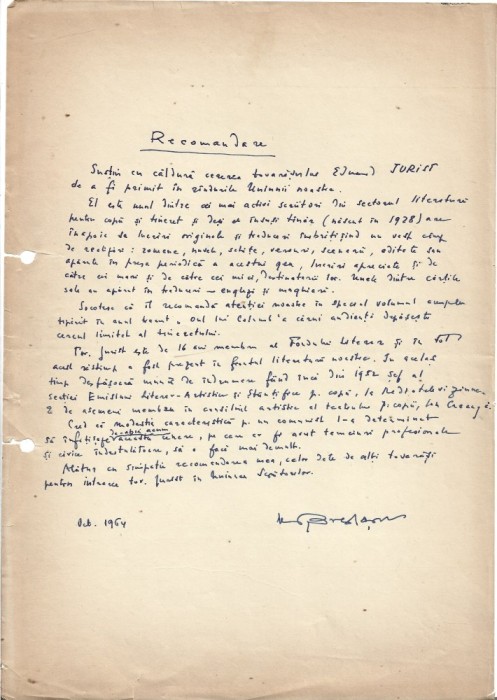 Recomandare
Susțin cu căldură cererea tovarășului Eduard JURIST
de a fi primit în rândurile Uniunii noastre.
El este unul dintre cei mai activi scriitori din sectorul literaturii
pentru copii și tineret și deși el însuși tînăr (născut în 1928) are
înapoia sa lucrări originale și traduceri îmbrățișînd un vast cîmp
de realizări: romane, nuvele, schițe, versuri, scenarii, editate sau
apărute în presa periodică a acestui gen, lucrări apreciate și de
către cei mari și de către cei mici, destinatarii lor. Unele dintre cărțile
sale au apărut în traducere în engleză și maghiară.
Socotesc că îl recomandă atenției noastre în special volumul
tipărit în anul acesta "Omul lui Colosul" a cărui audiență depășește
cercul limitat al tineretului.
Tov. Jurist este de 16 ani membru al Fondului Literar și în tot
acest răstimp a fost prezent în frontul literaturii noastre. În același
timp desfășoară muncă de îndrumare fiind încă din 1952 șef al
secției Emisiuni Literar-Artistice și Științifice p. copii, la Radiodifuziune
E de asemeni membru în consiliul artistic al teatrului p. copii, Ion Creangă.
Cred că modestia caracteristică p. un comunist l-a determinat
să înfățișeze de-abia acum această cerere, pe care ar fi avut temeiuri profesionale
și civice îndestulătoare, să o facă mai demult.
Alătur cu simpatie recomandarea mea, celor date de alți tovarăși
pentru intrarea tov. Jurist în Uniunea Scriitorilor.
Oct. 1964